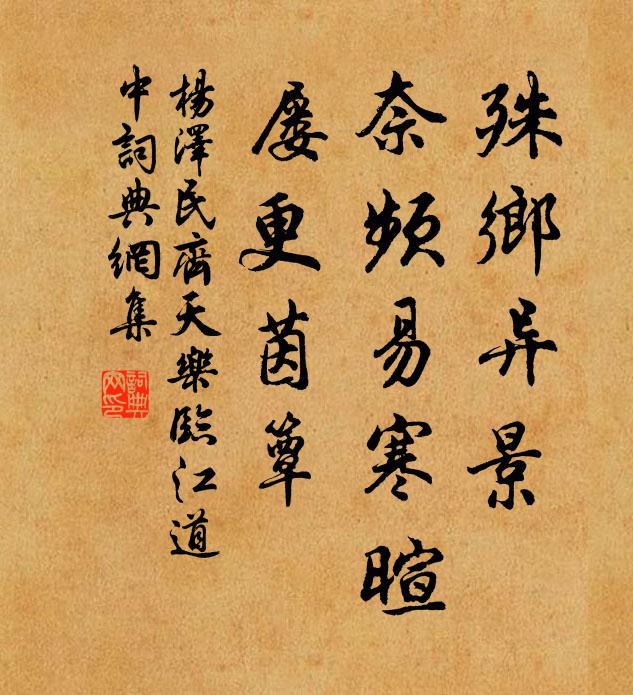 殊鄉异景
奈頻易寒暄
屡更茵簟
楊澤民齊天樂臨江道
中詞典網集
詞典网印